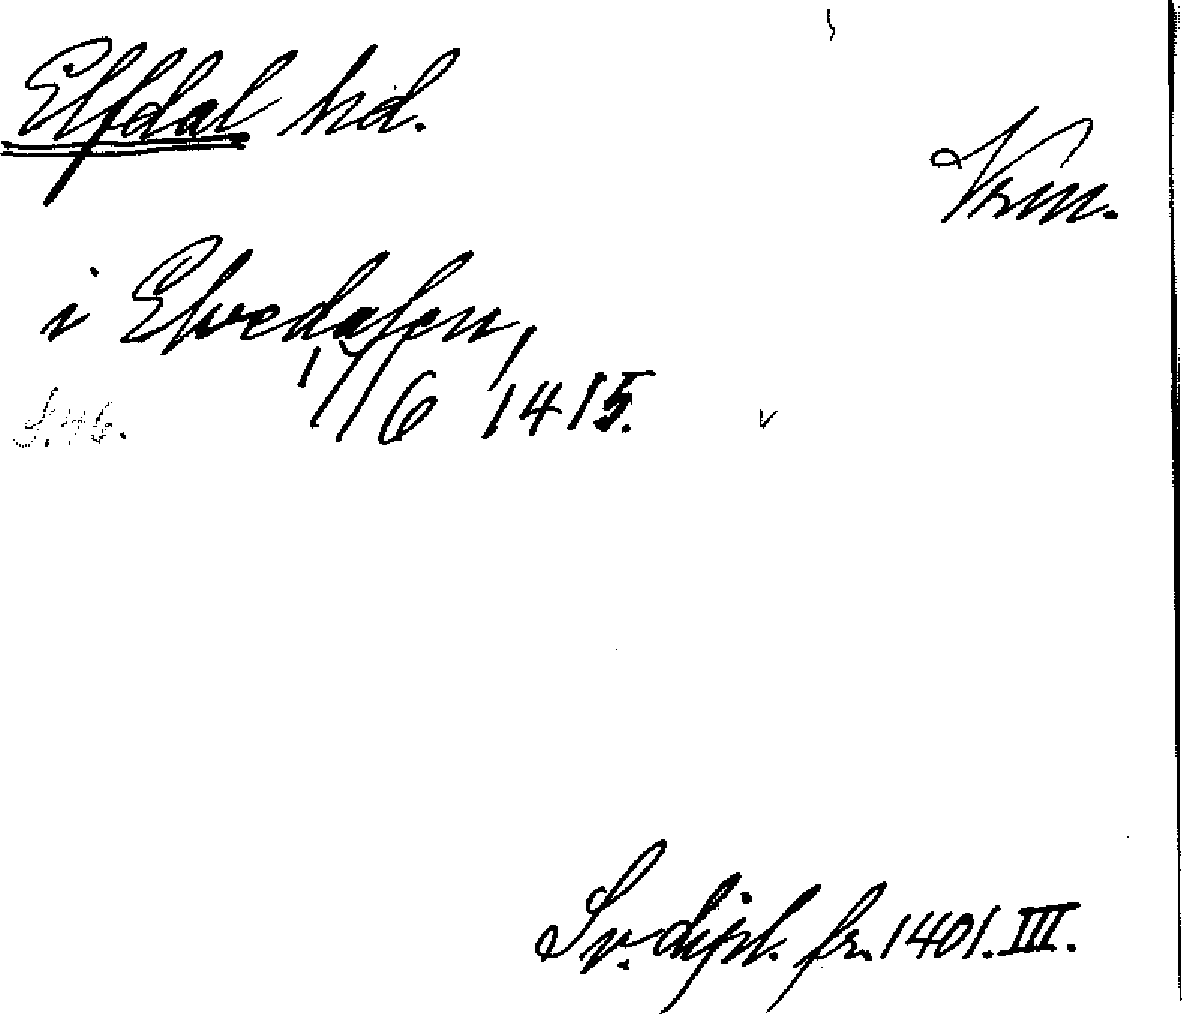 Elfdal hd.
Vrm.
i Elvedalen,
17/6 1415.
S. 46.
Sv. dipl. fr. 1401. III.